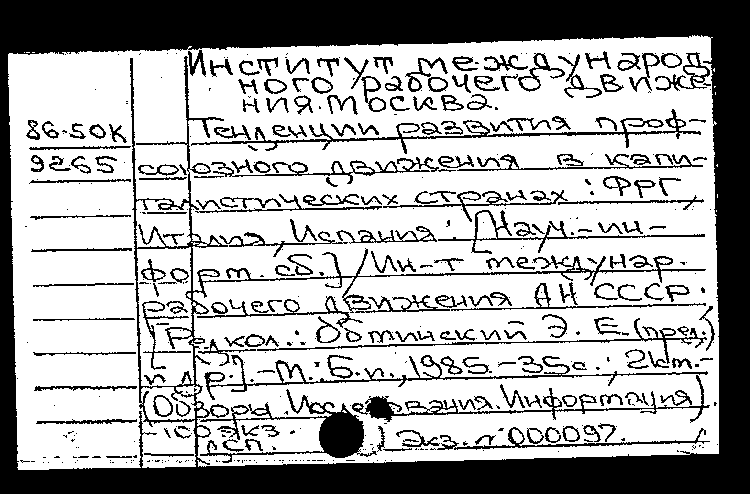 Институт международ-
ного рабочего движе
ния. Москва.
86-50К Тенденции развития проф-
9265 союзного движения в капи-
талистических странах: ФРГ,
Италия, Испания. [Науч.-ин-
форм. сб.] / Ин-т междунар.
рабочего движения АН СССР.
[Редкол.: Обминский Э. Е. (пред.)
и др.]. -М.: Б.и., 1985. -35с.; 21см.-
(Обзоры. Исследования. Информация).
-100 экз.
ДСП. Экз. № 000097.